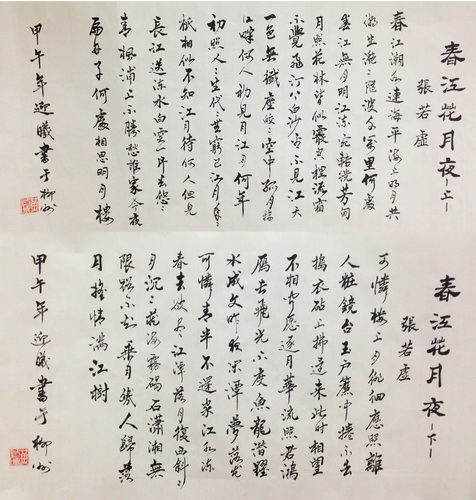 春江花月夜-上-
張若虛
春江潮水連海平海上明月共
潮生灩〻隨波千萬里何處
春江無月明江流宛轉遶芳甸
月照花林皆似霰空裡流霜
不覺飛汀上白沙看不見江天
一色無纖塵皎〻空中孤月輪
江畔何人初見月江月何年
初照人〻生代〻無窮已江月年〻
祇相似不知江月待何人但見
長江送流水白雲一片去悠〻
青楓浦上不勝愁誰家今夜
扁舟子何處相思明月樓
甲午年迎曦書于柳州
春江花月夜-下-
張若虛
可憐樓上月徘徊應照離
人粧鏡台玉戶簾中捲不去
搗衣砧上拂還來此時相望
不相聞願逐月華流照君鴻
雁長飛光不度魚龍潛躍
水成文昨夜閑潭夢落花
可憐春半不還家江水流
春去欲盡江潭落月復西斜〻
月沉〻藏海霧碣石瀟湘無
限路不知乘月幾人歸落
月搖情滿江樹
甲午年迎曦書于柳州